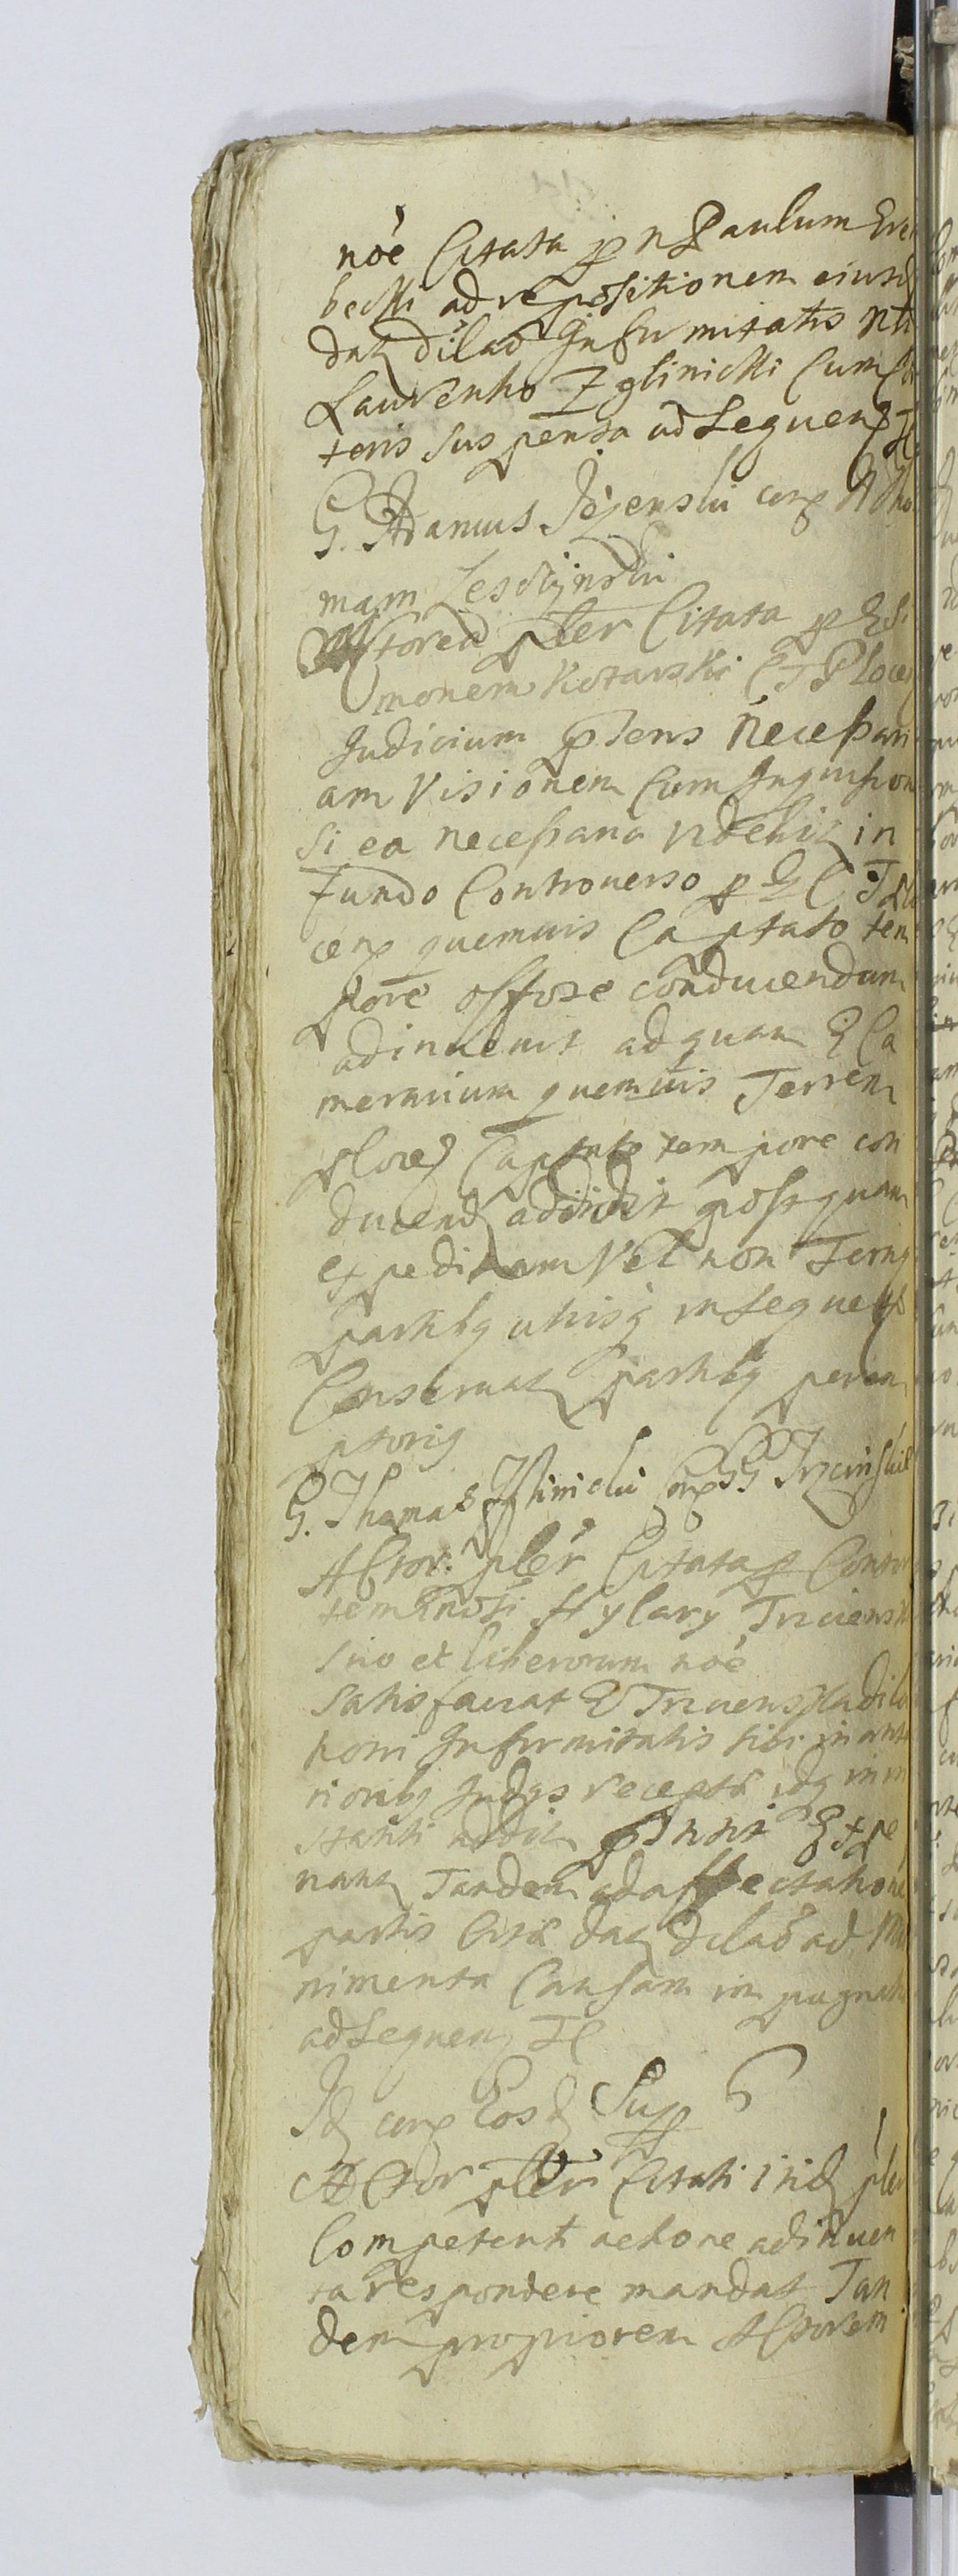 nõe Citata p n Paulum
becki ad repositionem eiusd
datz dilaõ Infirmitatis Nti
Laurentio Zglinicki Cum
teris suspensa ad Sequenz
G. Adamus Jezenski conz Tho
mam Leschÿnski
Actorea pter Citata p
monem Kotarski C T Ploce
Judicium pñens Necessari
am Visionem Cum Inquision
Si ea necessaria videbitz in
fundo Controuerso p C T Plo
cenz quemuis Captato tem
pore offose conducendam
adinuenit ad quam G Ca
merarium quemuis Terren
ploceñ Captato tempore con
ducendz addidit postquam
expeditam Vel non Termĩ
partibq utrisq in sequenz
Conseruatz partibq perem
ptorie
G. Thomas Zglinicki conz GG Trzcinskie
Actor: pter Citata p Consor
tem Gnosi Hylary Trzciensk
suo et liberorum nõe
Satisfaciat G Trzcienska dila
tioni Infirmitatis sibi in ante
rioribq Judÿs receptæ idq in in
stanti addit
nantz Tandem ad affectatione
partis Citæ datz dilaõ ad Mu
nimenta Causam in pugnatz
ad Sequenz TC
Idz conz Eosdz Supp
Actor pter Citati itidz pter
Competenti actione adinuen
ta respondere mandat Tan
dem propiorem Actorem